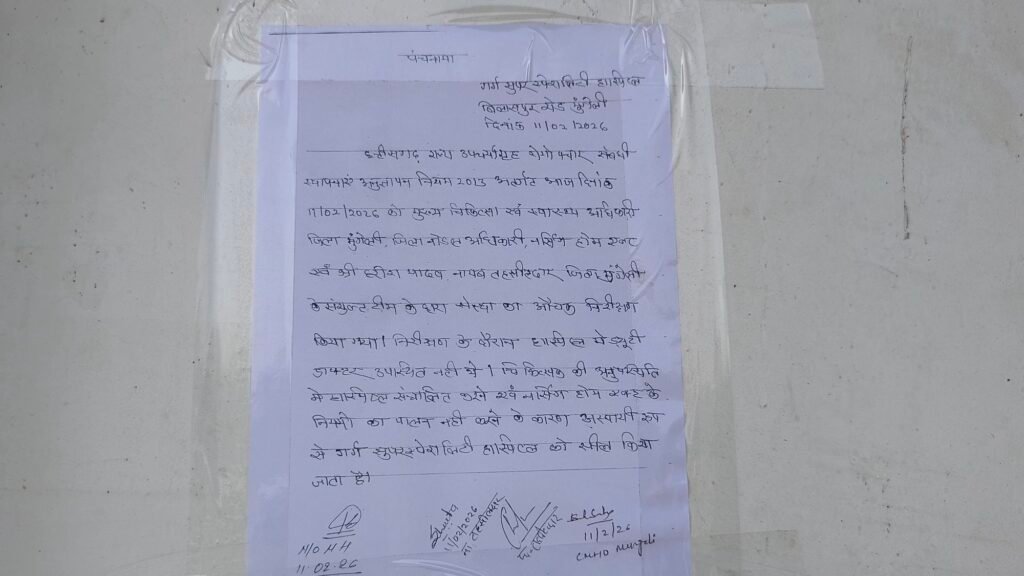 पंचनामा
गर्ग सुपर स्पेशलिटी हास्पिटल
बिलासपुर रोड मुंगेली
दिनांक 11/02/2026
छत्तीसगढ़ राज्य उपचर्यागृह रोगोपचार संबंधी
स्थापनाएं अनुज्ञापन नियम 2013 अंतर्गत आज दिनांक
11/02/2026 को मुख्य चिकित्सा एवं स्वास्थ्य अधिकारी
जिला मुंगेली, जिला नोडल अधिकारी, नर्सिंग होम एक्ट
एवं श्री हरीश यादव, नायब तहसीलदार, जिला मुंगेली
के संयुक्त टीम के द्वारा संस्था का औचक निरीक्षण
किया गया। निरीक्षण के दौरान हास्पिटल मे ड्यूटी
डाक्टर उपस्थित नही थे। चिकित्सक की अनुपस्थिति
मे हास्पिटल संचालित करने एवं नर्सिंग होम एक्ट के
नियमो का पालन नही करने के कारण अस्थायी रूप
से गर्ग सुपरस्पेशलिटी हास्पिटल को सील किया
जाता है।
11/02/2026
ना. तहसीलदार
11/2/26
CMHO Mungeli
N/O N H
11 02.26